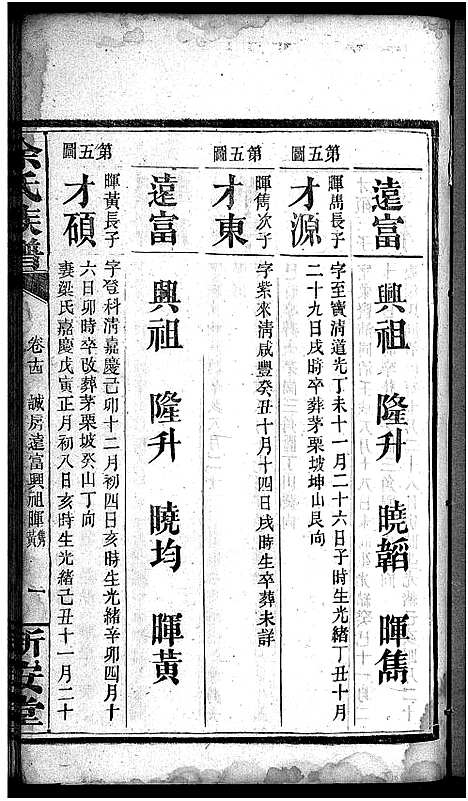 遠富 興祖 隆升 曉韜 暉雋
第五圖
才源
暉雋長子
字至寶清道光丁未十一月二十六日子時生光緒丁丑十月
二十九日戌時卒葬茅栗坡坤山艮向
第五圖
才東
暉雋次子
字紫來清咸豐癸丑十月十四日戌時生卒葬未詳
遠富 興祖 隆升 曉均 暉黃
第五圖
才碩
暉黃長子
字登科清嘉慶己卯十二月初四日亥時生光緒辛卯四月十
六日卯時卒改葬茅栗坡癸山丁向
妻梁氏嘉慶戊寅正月初八日亥時生光緒己丑十一月二十
余氏族譜
卷十四 誠房遠富興祖暉雋黃 一
新安堂